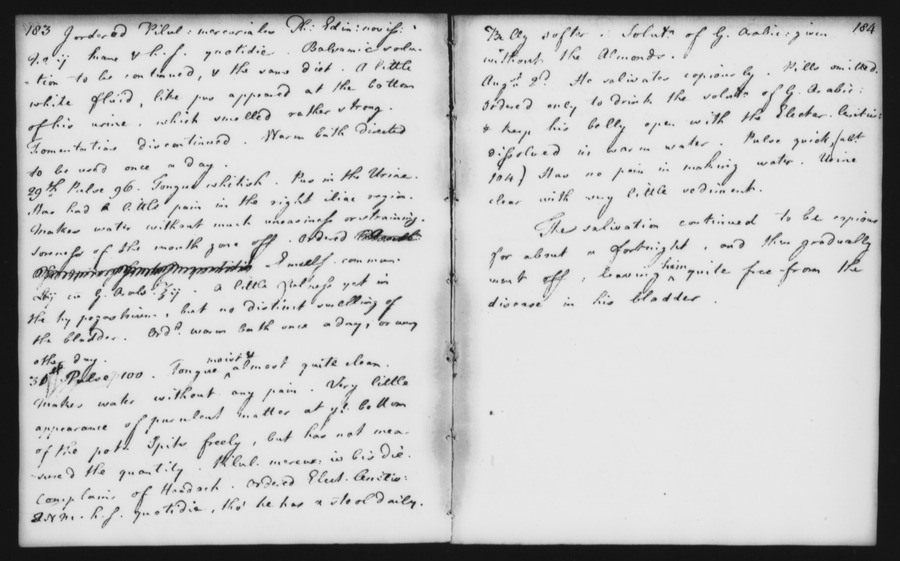 183 I ordered Pilul: mercuriales Ph: Edin: novis:
mane & h.s. quotidie. Balsamic solu-
-tion to be continued, & the same diet. A little
white fluid, like pus appeared at the bottom
of his urine, which smelled rather strong.
Fomentation discontinued. Warm bath directed
to be used once a day.
29th Pulse 96. Tongue whitish. Pus in the Urine.
Has had a little pain in the right iliac region.
Makes water without much uneasiness or straining.
Soreness of the mouth gone off. Ordered
Emuls. commun:
℔ij cu G. Arab: ℥ij. A little fulness yet in
the hypogastrium, but no distinct swelling of
the bladder. Ord.d warm bath once a day, or every
other day.
31st Pulse 100. Tongue moist & almost quite clean.
Makes water without any pain. Very little
appearance of purulent matter at ye bottom
of the pot. Spits freely, but has not mea-
sured the quantity. Pilul. mercur: in bis die.
Complains of Headach. Ordered Elect. lenitiv:
h.s. quotidie, tho' he has a stool daily.
184
Belly softer. Solut.n of G. Arabic: given
without the Almonds.
Aug.t 2.d He salivates copiously. Pills omitted.
Ordered only to drink the solut.n of G. Arabic:
& keep his belly open with the Electar. lenitiv:
dissolved in warm water. Pulse quick (abt
104) Has no pain in making water. Urine
clear with very little sediment.
The salivation continued to be copious
for about a fortnight, and then gradually
went off, leaving him quite free from the
disease in his bladder.